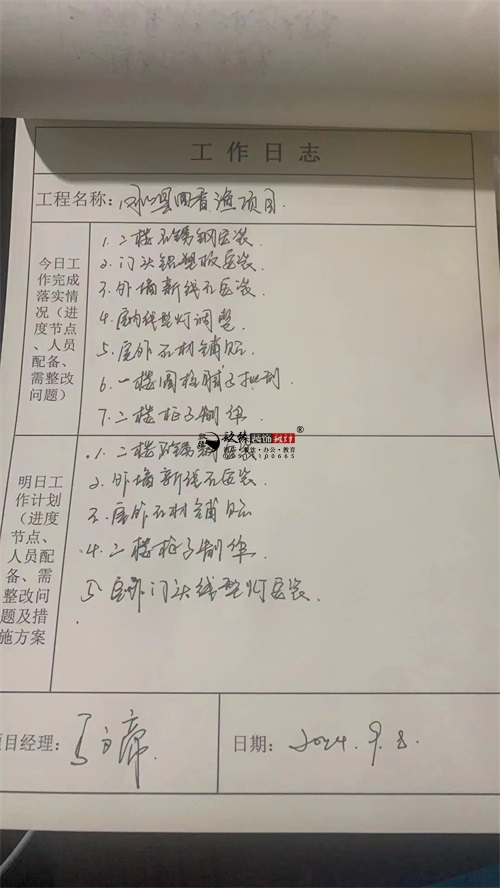 工作日志
工程名称：
今日工作完成落实情况（进度节点、人员配备、需整改问题）
1. 二楼不锈钢安装.
2. 门头铝塑板安装.
3. 外墙新线石安装.
4. 室内线型灯调整
5. 屋外石材铺贴
6. 一楼圆柱腻子批刮
7. 二楼柜子制作
明日工作计划（进度节点、人员配备、需整改问题及措施方案
1. 二楼不锈钢安装
装饰设计®
酒店·餐饮·办公·教育
2. 外墙新线石安装
3. 屋外石材铺贴
4. 二楼柜子制作.
5. 室外门头线型灯安装.
项目经理：
日期：2024.9.8.